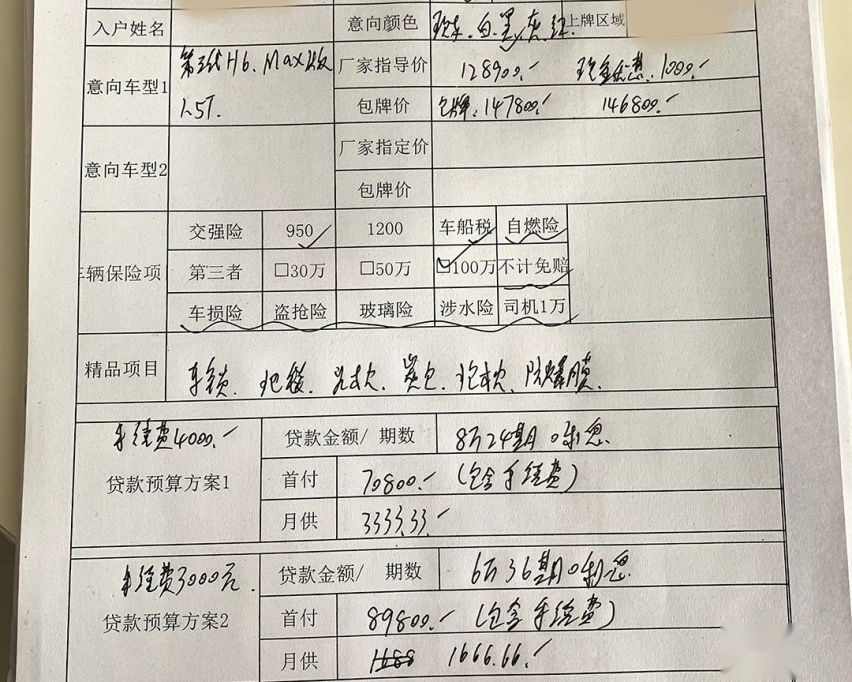 入户姓名 意向颜色 白.黑.灰.红 上牌区域
意向车型1 第三代H6.Max版 1.5T. 厂家指导价 128900.- 现金优惠.1000.-
包牌价 包牌.147800.- 146800.-
意向车型2 厂家指定价
包牌价
交强险 950 1200 车船税 自燃险
车辆保险项 第三者 □30万 □50万 □100万 不计免赔
车损险 盗抢险 玻璃险 涉水险 司机1万
精品项目 车锁. 地毯. 防爆膜.
手续费4000.- 贷款金额/ 期数 8万24期 0利息
贷款预算方案1 首付 70800.- (包含手续费)
月供 3333.33.-
手续费3000元. 贷款金额/ 期数 6万36期0利息
贷款预算方案2 首付 89800.- (包含手续费)
月供 1666.66.-